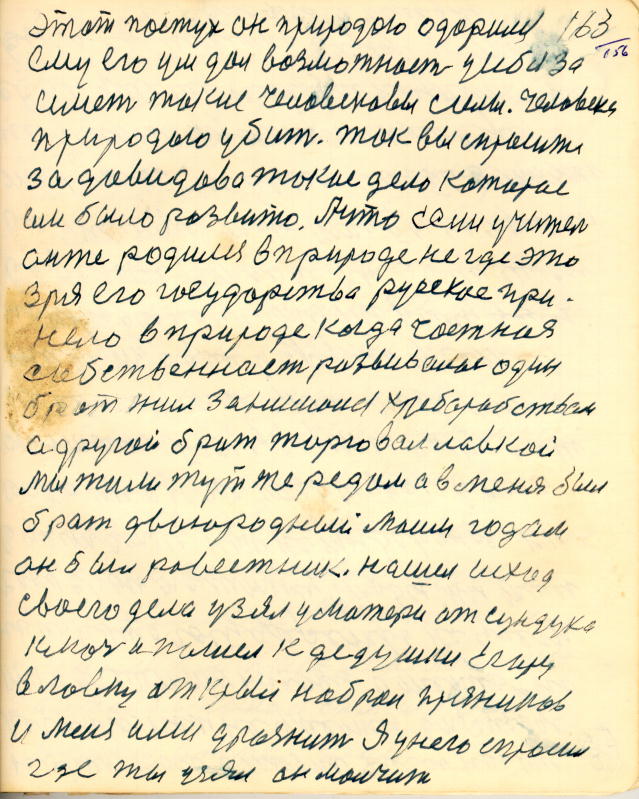 163
156
этот поступк он природою одарил
ему его ум дал возможност уйбиза
имет такие человековы силы. человека
природою убит. так вы спросите
за давидова такое дело каторае
им было развито. А што если учител
анже родился в природе не где это
зря его государства руское при-
нело в природе когда частная
собственност развивалас один
брат жил занимался хлебарабствам
а другой брат торговал лавкой
мы жили тут же редом а в меня был
брат двоюродный моим годам
он был ровестник. нашел исход
своего дела узял у матери от сундука
ключ и пошел к дедушки Егору
в лавку открыл набрал пряников
и меня ими дразнит Я унего спросил
где ты узял он молчит